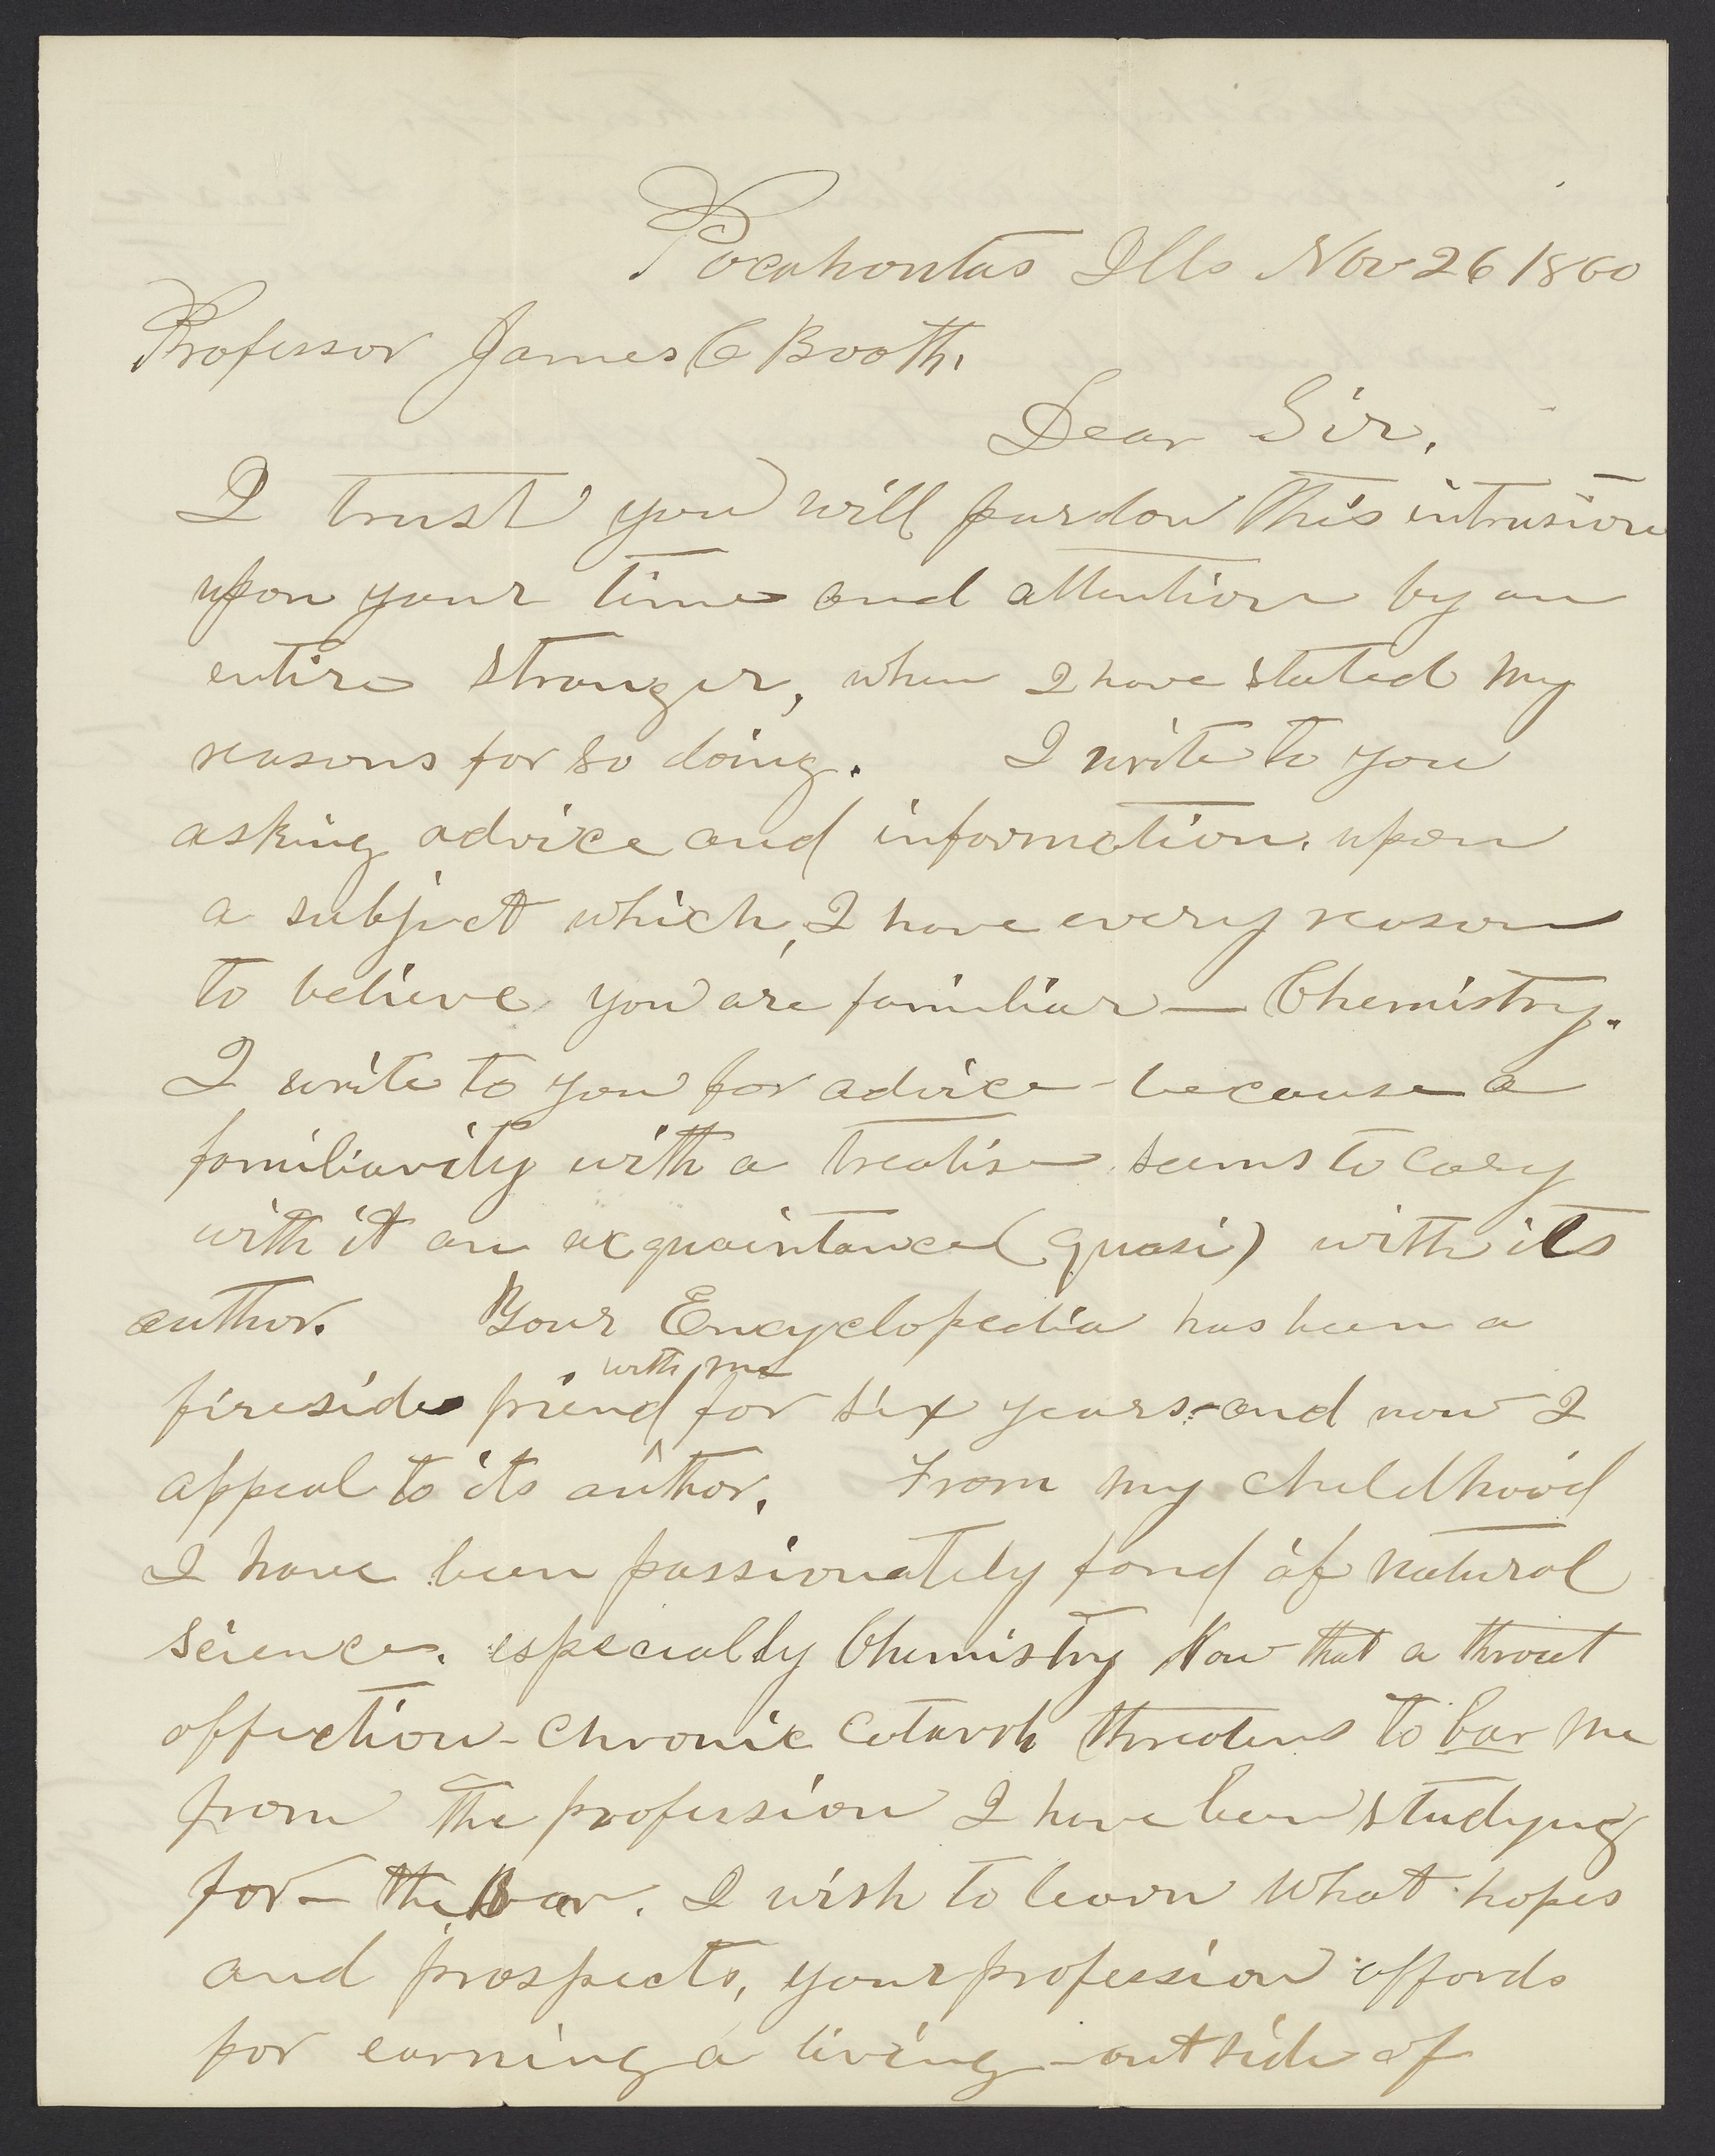 Pocahontas Ills Nov 26 1860
Professor James C Booth.
Dear Sir.
I trust you will pardon this intrusion
upon your time and attention by an
entire stranger, when I have stated my
reasons for so doing. I write to you
asking advice and information. upon
a subject which, I have every reason
to believe you are familiar — Chemistry.
I write to you for advice - because a
familiarity with a treatise seems to cary
with it an acquaintance (quasi) with its
author. Your Encyclopedia has been a
with me
fireside friend for six years - and now I
appeal to its author. From my childhood
I have been passionately fond of natural
science. especially Chemistry Now that a throat
affection - chronic Catarrh threatens to bar me
from the profession I have been studying
for - the Bar. I wish to learn what hopes
and prospects, your profession affords
for earning a living - outside of